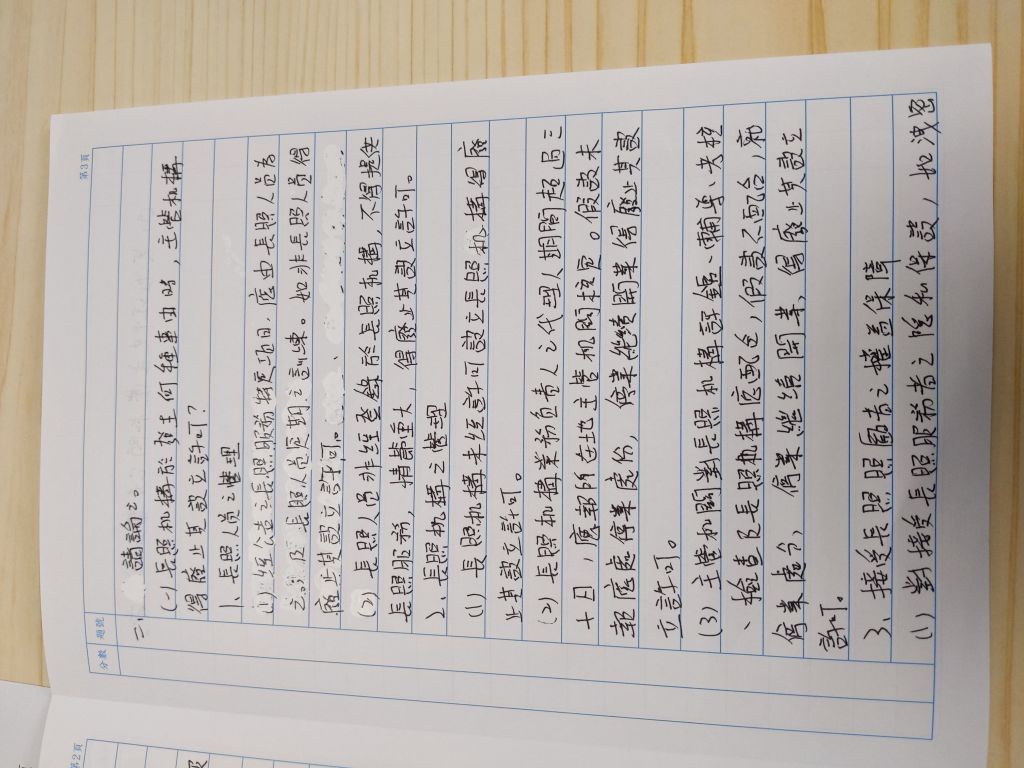 第3頁
分數 題號
三、 請論述。
(一)長照机構於發生何種事由時，主管机構
得廢止其設立許可？
1、長照人員之管理
(1)經公告之長照服務特定項目，應由長照人員為
之。 及長照人員定期之訓練。如非長照人員得
廢止其設立許可。
(2) 長照人員非經登錄於長照机構，不得提供
長照服務，情節重大，得廢止其設立許可。
2、長照机構之管理
(1) 長照机構未經許可設立長照机構得廢
止其設立許可。
(2) 長照机構業務負責人之代理人期間超過三
十日，應報所在地主管机關核定。假設未
報医處停業處份，停業继續開業得廢止其設
立許可。
(3) 主管机關對長照机構評鑑、輔導、考核
、檢查及長照机構應配合，假設不配合，第
停業處分，停業继續開業，得廢止其設立
許可。
3、接受長照照顧者之權益保障
(1) 對接受長照服務者之隱私保設，如洩密
第2頁